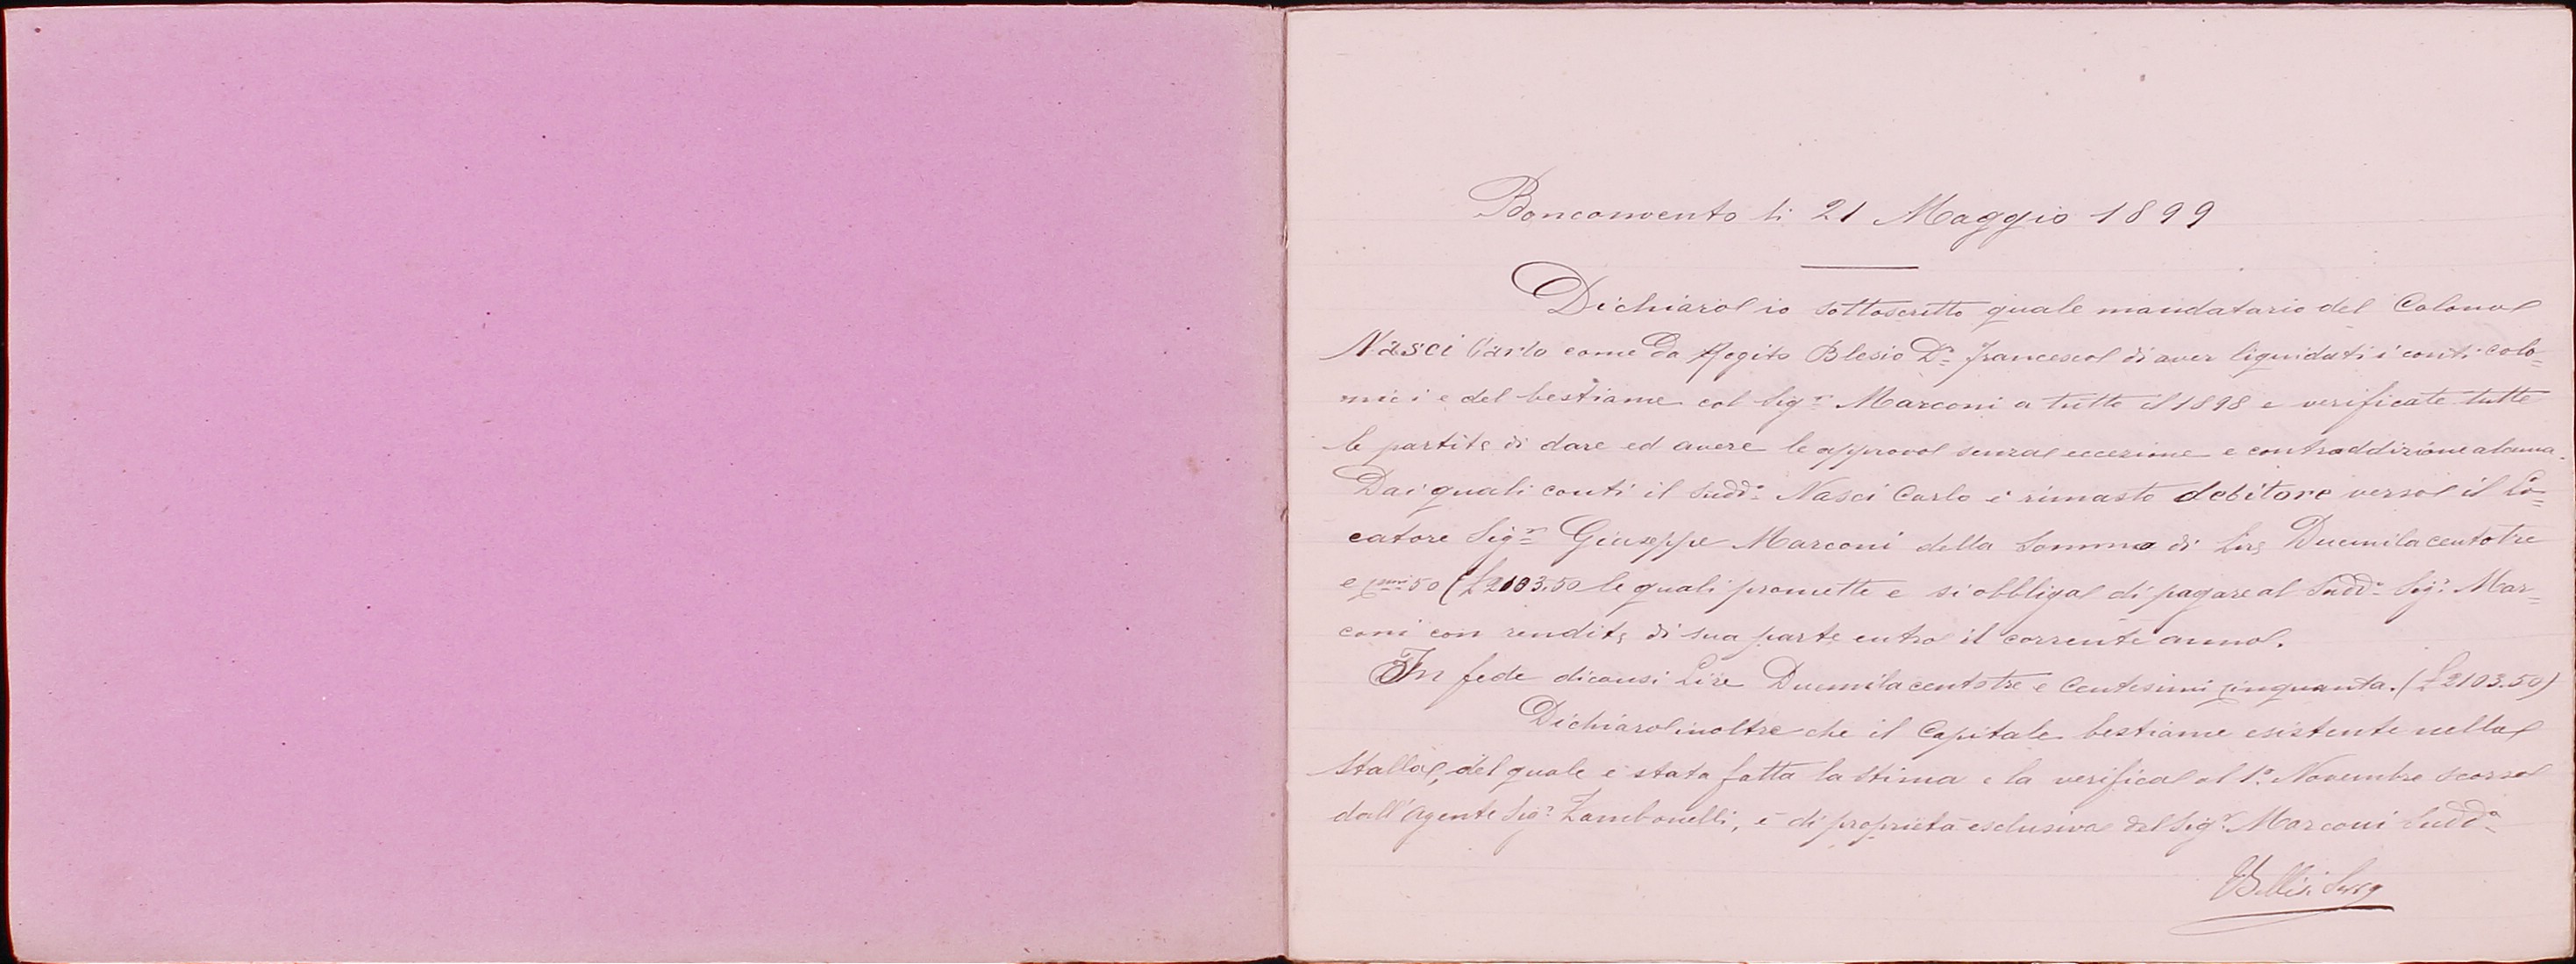 Bonconvento li 21 Maggio 1899
Dichiaro io sottoscritto quale mandatario del Colono
Nasci Carlo come da Rogito Blesio Dr. Francesco di aver liquidati i conti colo=
nici e del bestiame col Sigr. Marconi a tutto il 1898 e verificate tutte
le partite di dare ed avere le approvo senza eccezione e contraddizione alcuna.
Dai quali conti il Sudd.o Nasci Carlo è rimasto debitore verso il Lo=
catore Sigr. Giuseppe Marconi della Somma di Lire Duemilacentotre
e 50 (£2103.50 le quali promette e si obbliga di pagare al Sudd.o Sigr. Mar=
coni con rendite di sua parte entro il corrente anno.
In fede diconsi Lire Duemilacentotre e Centesimi cinquanta. (£2103.50)
Dichiaro inoltre che il Capitale bestiame esistente nella
stalla, del quale è stata fatta la stima e la verifica al 1.o Novembre scorso
dall'Agente Sigr. Zambonelli, è di proprietà esclusiva del Sigr. Marconi Sudd.o